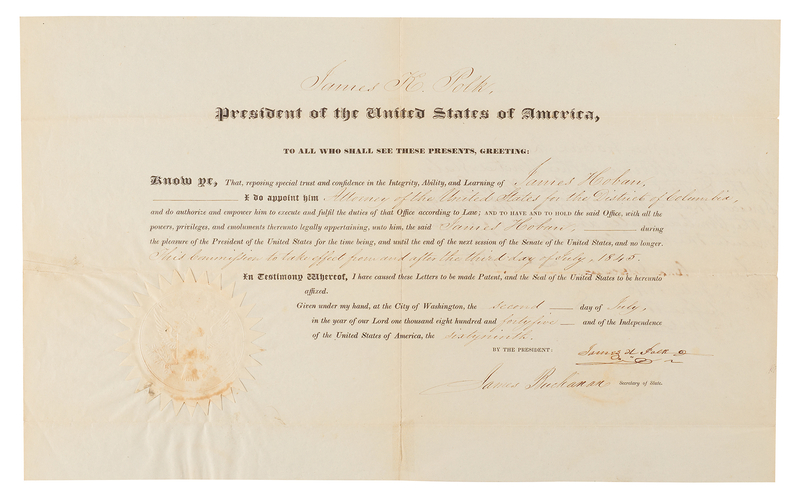 James K. Polk,
President of the United States of America,
TO ALL WHO SHALL SEE THESE PRESENTS, GREETING:
Know ye, That, reposing special trust and confidence in the Integrity, Ability, and Learning of James Hoban,
I do appoint him Attorney of the United States for the District of Columbia,
and do authorize and empower him to execute and fulfil the duties of that Office according to Law; AND TO HAVE AND TO HOLD the said Office, with all the
powers, privileges, and emoluments thereunto legally appertaining, unto him, the said James Hoban, during
the pleasure of the President of the United States for the time being, and until the end of the next session of the Senate of the United States, and no longer.
This Commission to take effect from and after the third day of July, 1845.
In Testimony Whereof, I have caused these Letters to be made Patent, and the Seal of the United States to be hereunto
affixed.
Given under my hand, at the City of Washington, the second day of July,
in the year of our Lord one thousand eight hundred and fortyfive and of the Independence
of the United States of America, the sixtyninth.
BY THE PRESIDENT: James K. Polk
James Buchanan Secretary of State.